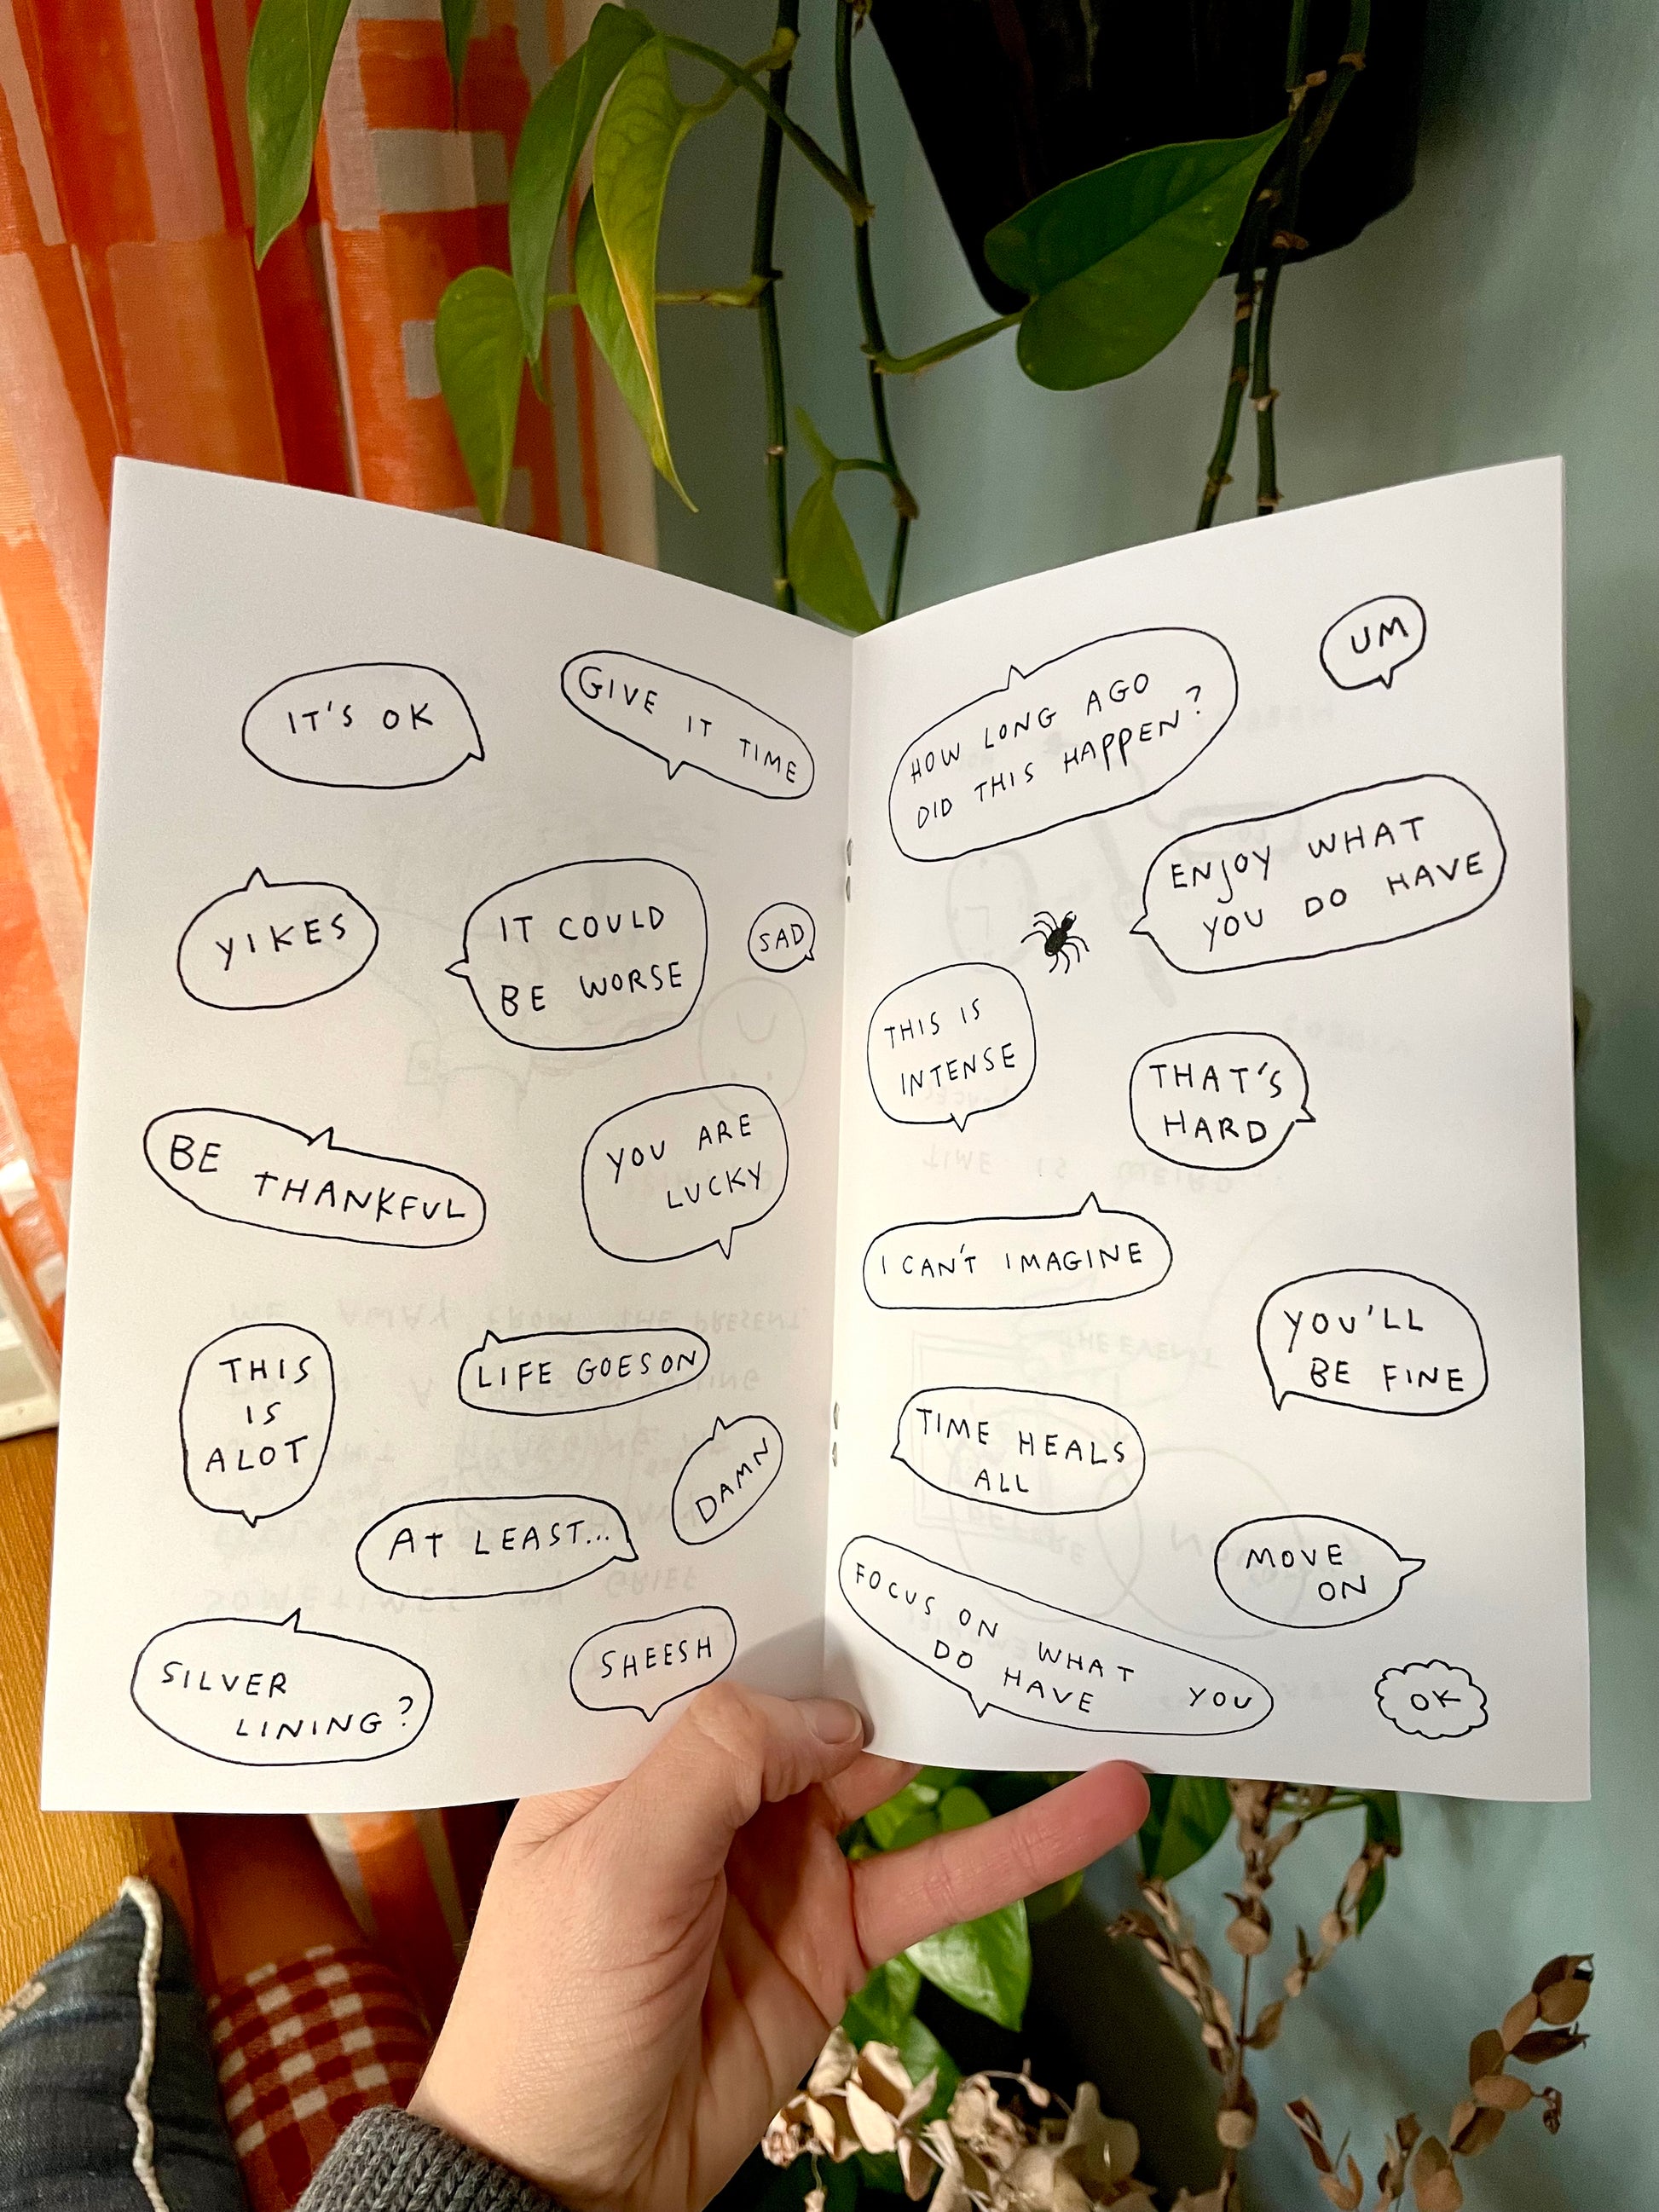 IT'S OK
GIVE IT TIME
YIKES
IT COULD
BE WORSE
SAD
BE THANKFUL
YOU ARE
LUCKY
THIS
IS
ALOT
LIFE GOES ON
DAMN
AT LEAST...
SILVER
LINING?
SHEESH
HOW LONG AGO
DID THIS HAPPEN?
UM
ENJOY WHAT
YOU DO HAVE
THIS IS
INTENSE
THAT'S
HARD
I CAN'T IMAGINE
YOU'LL
BE FINE
TIME HEALS
ALL
MOVE
ON
FOCUS ON WHAT YOU
DO HAVE
OK